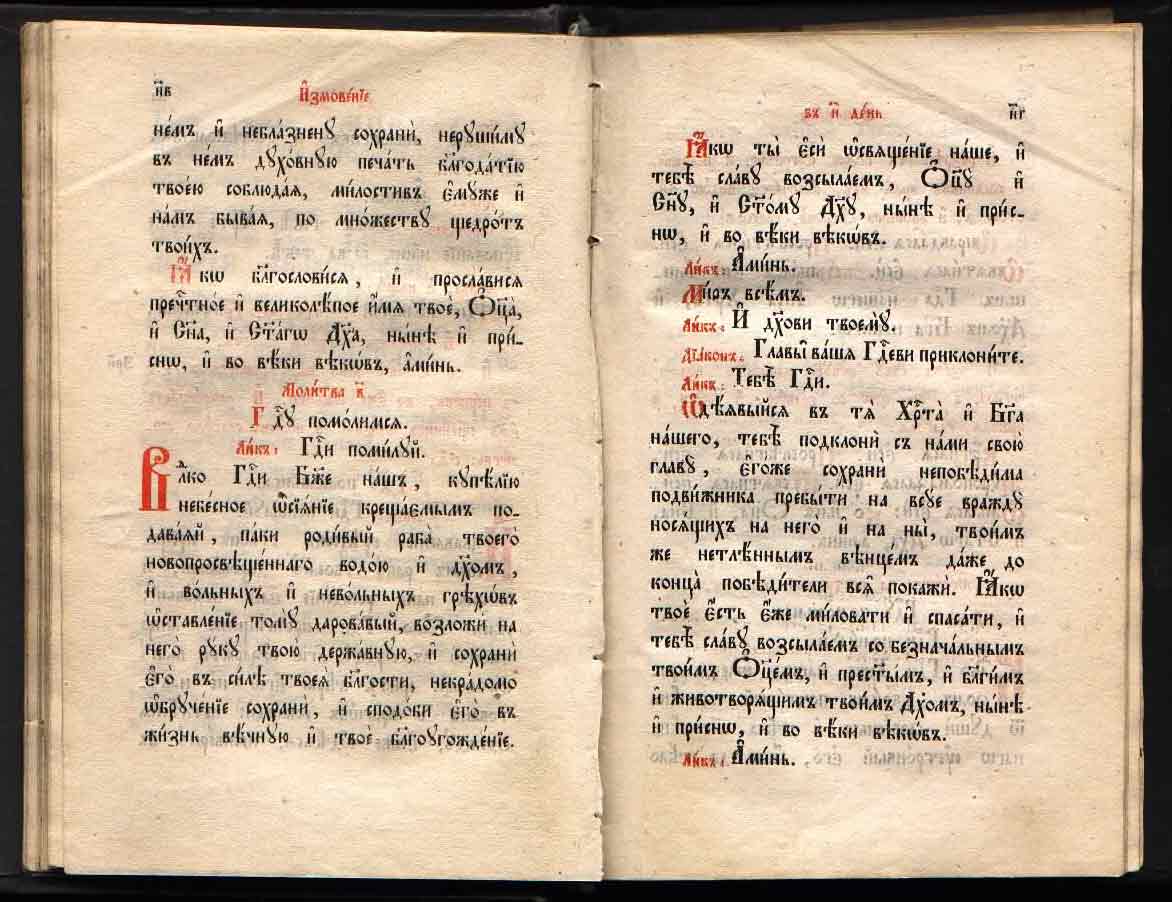 н҃в
И҆змове́нїе
не́мъ и҆ неблазненꙋ̀ сохранѝ, нерꙋши́мꙋ
въ не́мъ дꙋхо́внꙋю печа́ть бл҃года́тїю
твое́ю соблюда́ѧ, ми́лостивъ є҆мꙋ́же и҆
на́мъ быва́ѧ, по мно́жествꙋ щедро́тъ
твои́хъ.
Ꙗ҆́кѡ бл҃гослови́сѧ, и҆ просла́висѧ
пречⷭ҇тно́е и҆ великолѣ́пое и҆́мѧ твоѐ, Ѻ҆ц҃а̀,
и҆ Сн҃а, и҆ Ст҃а́гѡ Дх҃а, ны́нѣ и҆ при́-
снѡ, и҆ во вѣ́ки вѣкѡ́въ, а҆ми́нь.
Моли́тва в҃
Гдⷭ҇ꙋ помо́лимсѧ.
Ли́къ: Гдⷭ҇и поми́лꙋй.
Влⷣко Гдⷭ҇и Бж҃е нашъ, кꙋпѣ́лїю
небе́сное ѡ҆сїѧ́нїе креща́ємымъ по-
дава́ѧй, па́ки роди́вый раба̀ твоего̀
новопросвѣще́ннаго водо́ю и҆ дх҃омъ,
и҆ во́льныхъ и҆ нево́льныхъ грѣхѡ́въ
ѡ҆ставле́нїе томꙋ̀ дарова́вый, возложѝ на
него̀ рꙋ́кꙋ твою̀ держа́внꙋю, и҆ сохранѝ
є҆го̀ въ си́лѣ твоеѧ̀ бл҃гости, некра́домо
ѡ҆брꙋче́нїе сохранѝ, и҆ сподо́би є҆го̀ въ
жи́знь вѣ́чнꙋю и҆ твоѐ бл҃гоꙋгожде́нїе.
въ и҃ де́нь
н҃г
Ꙗ҆́кѡ ты̀ є҆сѝ ѡ҆свѧще́нїе на́ше, и҆
тебѣ̀ сла́вꙋ возсыла́емъ, Ѻ҆ц҃ꙋ̀ и҆
Сн҃ꙋ, и҆ Ст҃о́мꙋ Дх҃ꙋ, ны́нѣ и҆ при́с-
нѡ, и҆ во вѣ́ки вѣкѡ́въ.
Ли́къ: А҆ми́нь.
Ми́ръ всѣ́мъ.
Ли́къ: И҆ дх҃ови твоемꙋ̀.
Дїа́конъ: Главы̑ ва́шѧ Гдⷭ҇еви приклони́те.
Ли́къ: Тебѣ̀ Гдⷭ҇и.
Ѡ҆дѣ́ѧвыйсѧ въ тѧ̀ Хрⷭ҇та̀ и҆ Бг҃а
на́шего, тебѣ̀ подклонѝ съ на́ми свою̀
главꙋ̀, є҆го́же сохранѝ непобѣди́ма
подви́жника пребы́ти на всꙋ́е враждꙋ̀
носѧ́щихъ на него̀ и҆ на ны̀, твои́мъ
же нетлѣ́ннымъ вѣнце́мъ да́же до
конца̀ побѣди́тели всѧ̑ покажѝ. Ꙗ҆́кѡ
твоѐ є҆́сть є҆́же ми́ловати и҆ спаса́ти, и҆
тебѣ̀ сла́вꙋ возсыла́емъ со безнача́льнымъ
твои́мъ Ѻ҆ц҃е́мъ, и҆ прест҃ы́мъ, и҆ бл҃ги́мъ
и҆ животворѧ́щимъ твои́мъ Дх҃омъ, ны́нѣ
и҆ при́снѡ, и҆ во вѣ́ки вѣкѡ́въ.
Ли́къ: А҆ми́нь.